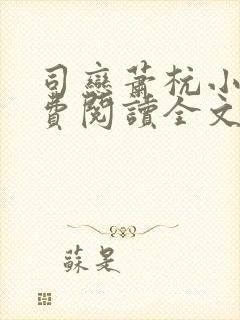 司戀蕭杭小
費閱讀全文
蘇是